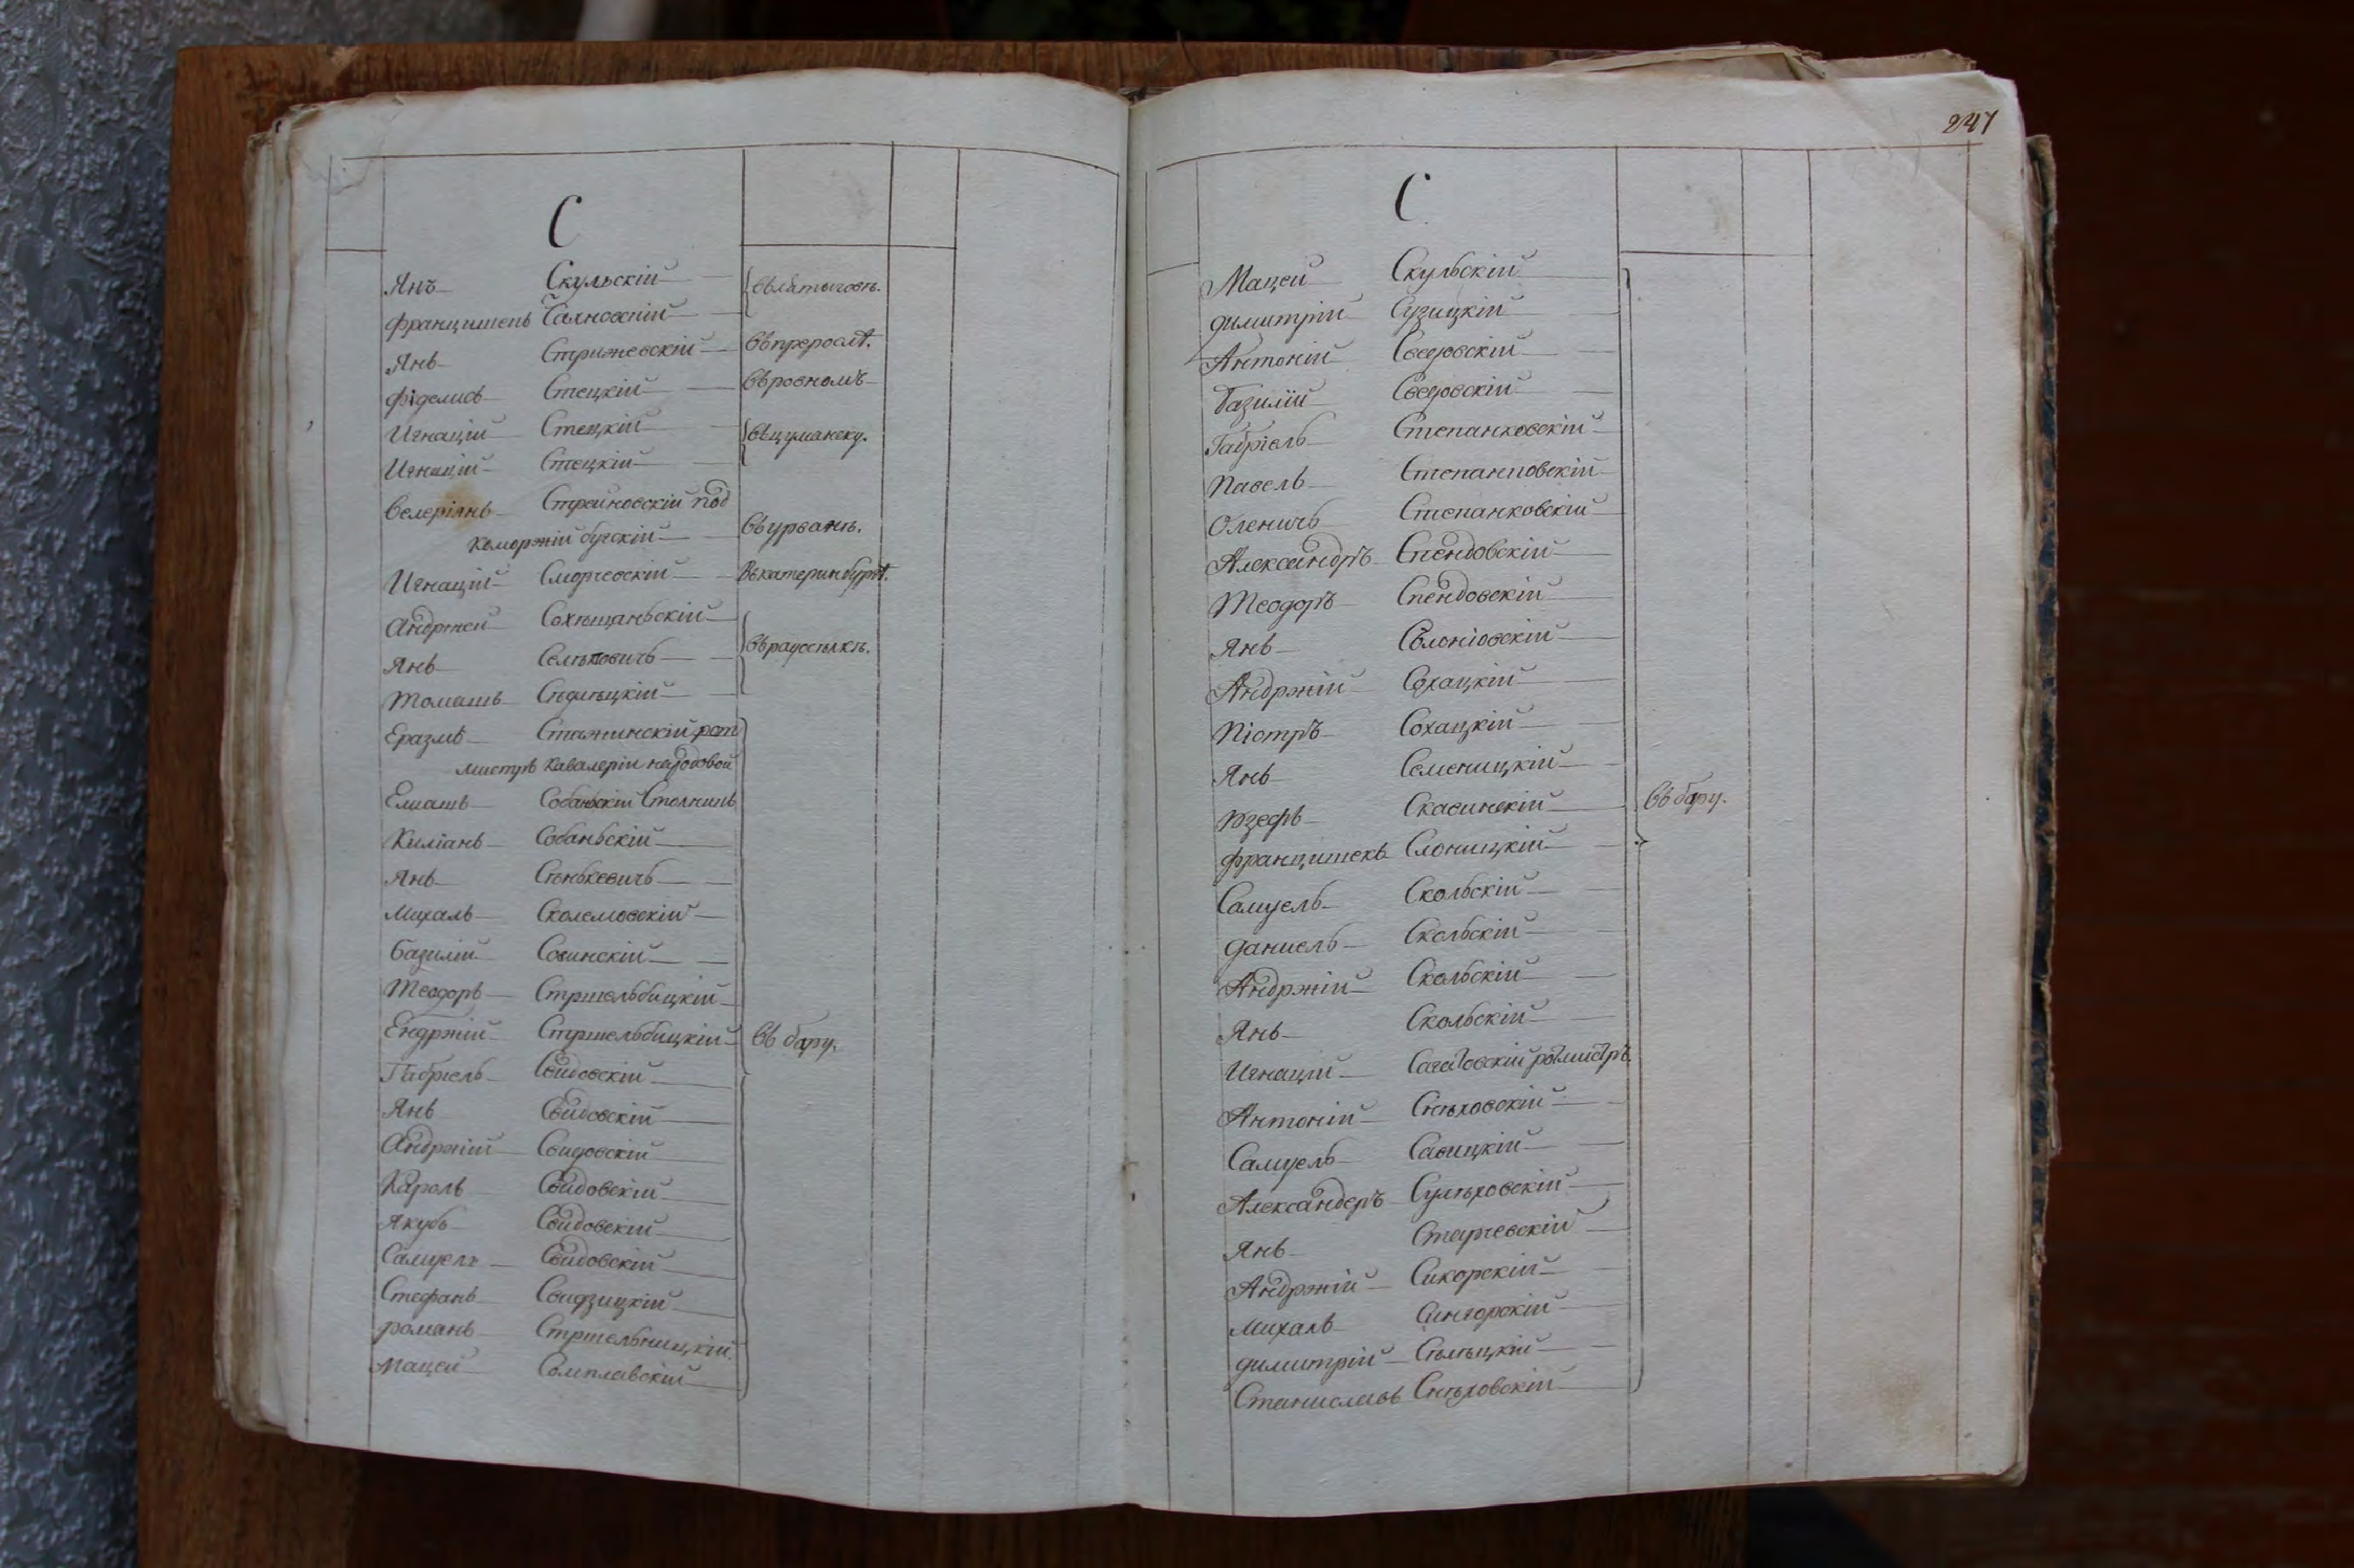 С
Янъ Скульскій
францишекъ Саяновскій
Янъ Стрижевскій
фіделисъ Стецкій въ ровномъ
Игнацій Стецкій
Игнацій Стецкій
Велеріянъ Стрейновскій под
коморжій бускій
Игнацій Сморчевскій въ катеринбургѣ.
Андржей
Янъ
Томашъ Сѣдлѣцкій
Еразмъ Стажинскій рот
мистръ кавалеріи народовой
Еліашъ Собаньскій Столникъ
Киліанъ Собаньскій
Янъ Сѣнькевичъ
Михалъ Сколемовскій
Базилій Совинскій
Теодоръ Стршельбицкій
Ендржій Стршельбицкій въ бару.
Габріель Свидовскій
Янъ Свидовскій
Андржій Свидовскій
Кароль Свидовскій
Якубъ Свидовскій
Самуель Свидовскій
Стефанъ Свидзицкій
романъ Стршельницкій
Мацей Семплавскій
247
С
Мацей Скульскій
димитрій Сузицкій
Антоній Сведовскій
базилій Сведовскій
Габріель Степанковскій
Павелъ Степанковскій
Степанковскій
Александръ Спендовскій
Теодоръ Спендовскій
Янъ
Андржій Сохацкій
Піотръ Сохацкій
Янъ Семеницкій
Юзефъ Скавинскій въ бару.
францишекъ Слоницкій
Самуель Скольскій
даниель Скольскій
Андржій Скольскій
Янъ Скольскій
Игнацій ротмистръ.
Антоній Снѣховскій
Самуель Савицкій
Александеръ
Янъ Старчевскій
Андржій Сикорскій
Михалъ Сикорскій
димитрій
Станиславъ Снѣховскій